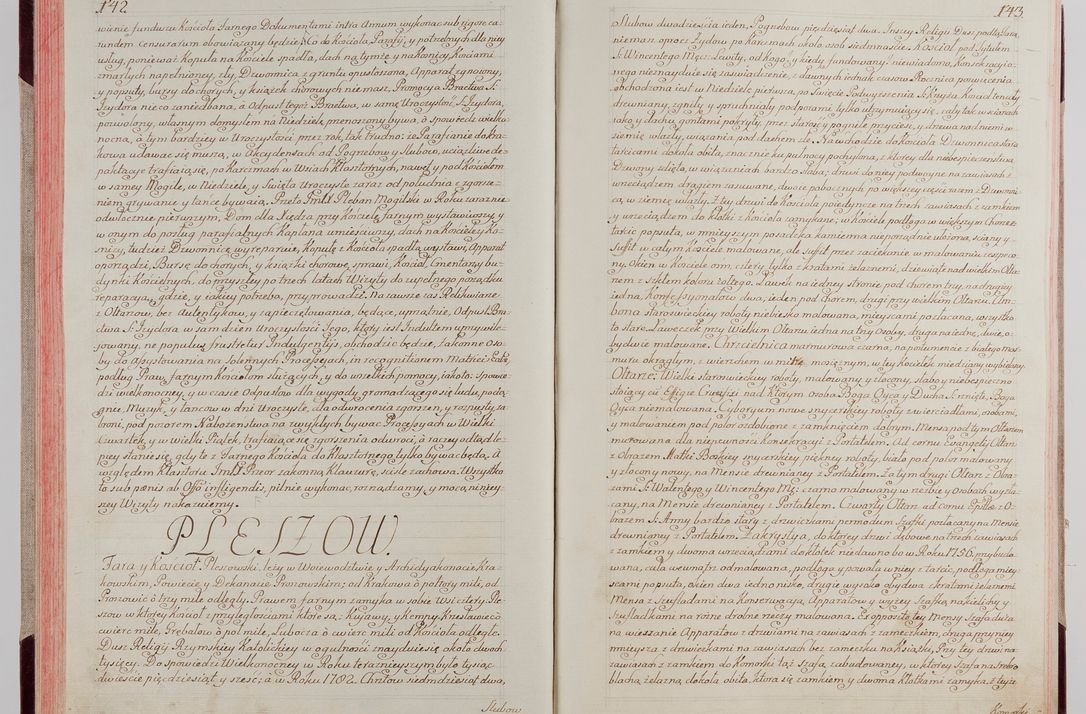 142.
wienie funduszu Kościoła Farnego Dokumentami intra Annum wykonać sub rigore ca-
rundem censurarum obowiązany będzie. Co do Kościoła, Paraffij, y potrzebnych dla niey
usług, ponieważ Kopuła na Kościele spadła, dach na tymże y na kostnicy, Kościami
zmarłych napełnioney, zły, Dzwonnica z gruntu opustoszona, Apparat zgnowny,
y popsuty, bursy do chorych, y książek chorowych niemasz, Promocya Bractwa S:
Izydora nieco zaniedbana, á Odpust tegoż Bractwa, w samę Uroczystość S: Izydora,
pozwolony, własnym domysłem na Niedzielę przenoszony bywa, á spowiedź wielka-
nocna, á tym bardziey w Uroczystości przez rok, tak trudno: że Parafianie do Kra-
kowa udawać się muszą, w Akcydensach od Pogrzebow y Slubow, uciążliwe de-
paktacye trafiaią się, po Karczmach w Wsiach Klasztornych, nawet y pod Kościołem
w samey Mogile, w Niedziele, y Swięta Uroczyste zaraz od południa z zgorsze-
niem, grywanie, y tance bywaią. Przeto Jmść X. Pleban Mogilski w Roku zaraz nie-
odwłocznie pierwszym, Dom dla Xiędza przy kościele farnym wystawiwszy, y
w onym do posług parafialnych Kapłana umieściwszy, dach na Kościele y Ko-
śnicy, tudzież Dzwonnicę wyreparuie, Kopułę z Kościoła spadłą wystawi, Apparat
oporządzi, Bursę do chorych, y książki chorowe sprawi, Kościół, Cmentarz y bu-
dynki Kościelnych, do przyszłey po trzech latach Wizyty do zupełnego porządku
reparacyą, gdzie, y iakiey potrzeba, przyprowadzi. Na zawsze zaś Relikwiarze
z Ołtarzow, bez autentykow, y zapieczętowania, będące, uprzątnie, Odpust Bra-
ctwa S: Izydora w sam dzień Uroczystości Jego, ktory iest Indultem uprzywile-
jowany, ne populus frustretur Indulgentijs, obchodzić będzie, zakonne Oso-
by do assystowania na solemnych Processyach, in recognitionem Matricis Ecclæ
podług Praw, farnym Kościołom służących, y do wszelkich pomocy, iakoto: spowie-
dzi wielkonocney, y w czasie Odpustow dla wygody gromadzącego się ludu, pocią-
gnie, Muzyk, y tancow w dni Uroczyste, dla odwrocenia zgorszen, y rozpusty za-
broni, pod pozorem Nabożenstwa na zwykłych bywać Processyach w Wielki
Czwartek, y w wielki Piątek, trafiaiące się zgorszenia odwroci, á raczey odtąd le-
piey stanie się, gdy te z Farnego Kościoła do Klasztornego tylko bywać będą. A
względem Klasztoru Jmść X. Przeor zakonną Klauzurę, ściśle zachowa. Wszystko
to sub pœnis ab Offo infligendis, pilnie wykonać, rozrządzamy, y mocą ninie-
szey Wizyty nakazuiemy.
PLESZOW.
Fara y Kościół Pleszowski, leży w Woiewodztwie y Archidyakonacie Kra-
kowskim, Powiecie y Dekanacie Proszowskim; od Krakowa o połtory mili, od
Proszowic o trzy mili odległy. Prawem farnym zamyka w sobie Wsi cztery. Ple-
szow w ktorey Kościół z przyległościami, ktore są: Kujawy, y Kempny. Krzesławice o
cwierć mile, Grębałow o pol mile, Lubocza o cwierć mili od Kościoła odległe.
Dusz Religij Rzymskiey Katolickiey w ogulności znayduie się około dwoch
tysięcy. Do spowiedzi Wielkonocney w Roku teraznieyszym było tysiąc
dwieście pięcdziesiąt y sześć; á w Roku 1782. Chrztow siedmdziesiąt dwa,
Slubow
143.
Slubow dwadzieścia ieden, Pogrzebow pięcdziesiąt dwa. Inszey Religij Dusz podległych
nie masz, oprocz Zydow po Karczmach około osob siedmnaście. Kościoł pod Tytułem
S. Wincentego Męcz: Lewity, od kogo, y kiedy fundowany? niewiadomo, Konsekracyi o-
nego nieznayduie się zaswiadczenie, z dawnych iednak czasow Rocznica poswięcenia
obchodzona iest w Niedzielę pierwszą, po Swięcie Podwyzszenia S. Krzyża. Kościoł ten cały
drewniany, zgniły y spruchniały, podporami tylko utrzymuiący się, gdy tak w scianach
iako y Dachu gontami pokryty, przez starość y pogniłe przyciesie, y drzewa na dniem w
ziemię włazły, wiązania pod dachem złe. Na wchodzie do Kościoła Dzwonnica stara
tarcicami dokoła obita, znacznie ku pułnocy pochylona, z ktorey dla niebespieczenstwa
Dzwony zdięte, w wiązaniach bardzo słaba; drzwi do niey podwoyne na zawiasach z
wrzeciądzem drągiem zasuwane, dwoie pobocznych po większey części razem z Dzwonni-
cą, w ziemię włazły. Z tey drzwi do Kościoła poiedyncze na trzech zawiasach z zamkiem
y wrzeciądzem do kłotki z Kościoła zamykane; w Kościele podłoga w większym Chorze z
tarcic popsuta, w mnieyszym posadzka kamienna nieporządnie ułożona, sciany, y
suffit w całym Kościele malowane, ale sufit przez zaciekanie w malowaniu zeszpeco-
ny. Okien w Kościele ośm, cztery tylko z kratami żelaznemi, dziewiąte nad wielkim Ołta-
rzem z szkłem koloru żołtego. Ławek na iedney stronie pod chorem trzy, na drugiey
iedna, Konfesyonałow dwa, ieden pod Chorem, drugi przy wielkim Ołtarzu, Am-
bona staroswieckiey roboty niebiesko malowana, mieyscami pozłacana, wszystko
to stare. Laweczek przy Wielkim Ołtarzu iedna na trzy Osoby, druga na iednę, dwie, o-
bydwie malowane. Chrzcielnica marmurowa czarna, na postumencie z białego mar-
muru okrągłym, z wierzchem w mitrę, mosiężnym, w tey kociełek miedziany wybielany.
Ołtarze: Wielki staroswieckiey roboty, malowany y złocony, słabo y niebespieczno
stoiący, cu Effigie Crucifixi nad Ktorym osoba Boga Oyca y Ducha S. rznięta, Boga
Oyca niemalowana. Cyborium nowe snycerskiey roboty z wierciadłami, osobami,
y malowaniem pod polor ozdobione z zamknięciem dobrym. Mensa pod tym Ołtarzem
murowana dla niepewności konsekracyi z Portatelem. Ad cornu Evangelij Ołtarz
z Obrazem Matki Boskiey snycerskiey, piękney roboty, biało pod polor malowany
y złocony nowy, na Mensie drewnianey z Portatelem. Za tym drugi Ołtarz z Obra-
zami S. Walentego y Wincentego Mę: czarno malowany w rzezbie y Osobach wyzła-
cany, na Mensie drewnianey z Portatelem. Czwarty Ołtarz ad cornu Epistolæ z O-
brazem S. Anny bardzo stary z drzwiczkami per modum Szafki pozłacany na Mensie
drewnianey z Portatelem. Zakrystya, do ktorey drzwi dębowe na trzech zawiasach
z zamkiem y dwoma wrzeciądzami do kłotek niedawno bo w Roku 1756. przybudo-
wana, cała wewnątrz odmalowana, podłoga y powała w niey z tarcic, podłoga miey-
scami popsuta, okien dwa iedno niskie, drugie wysoko, obydwa z kratami żelaznemi.
Mensa z szufladami na konserwacyą, Apparatow y wyzey Szafka, na Kielichy y
szufladkami na rożne drobne rzeczy malowana. Ex opposito tey Mensy Szafa duża
na wieszanie Apparatow z drzwiami na zawiasach z zameczkiem, druga przy niey
mnieysza z drzwiczkami na zawiasach bez zameczku na książki, Przy tey drzwi na
zawiasach z zamkiem do komorki tąż Szafą zabudowaney, w ktorey Szafa na srebro
blachą żelazną dokoła obita, ktora się zamkiem y dwoma kłotkami zamyka, z teyże
Komorki